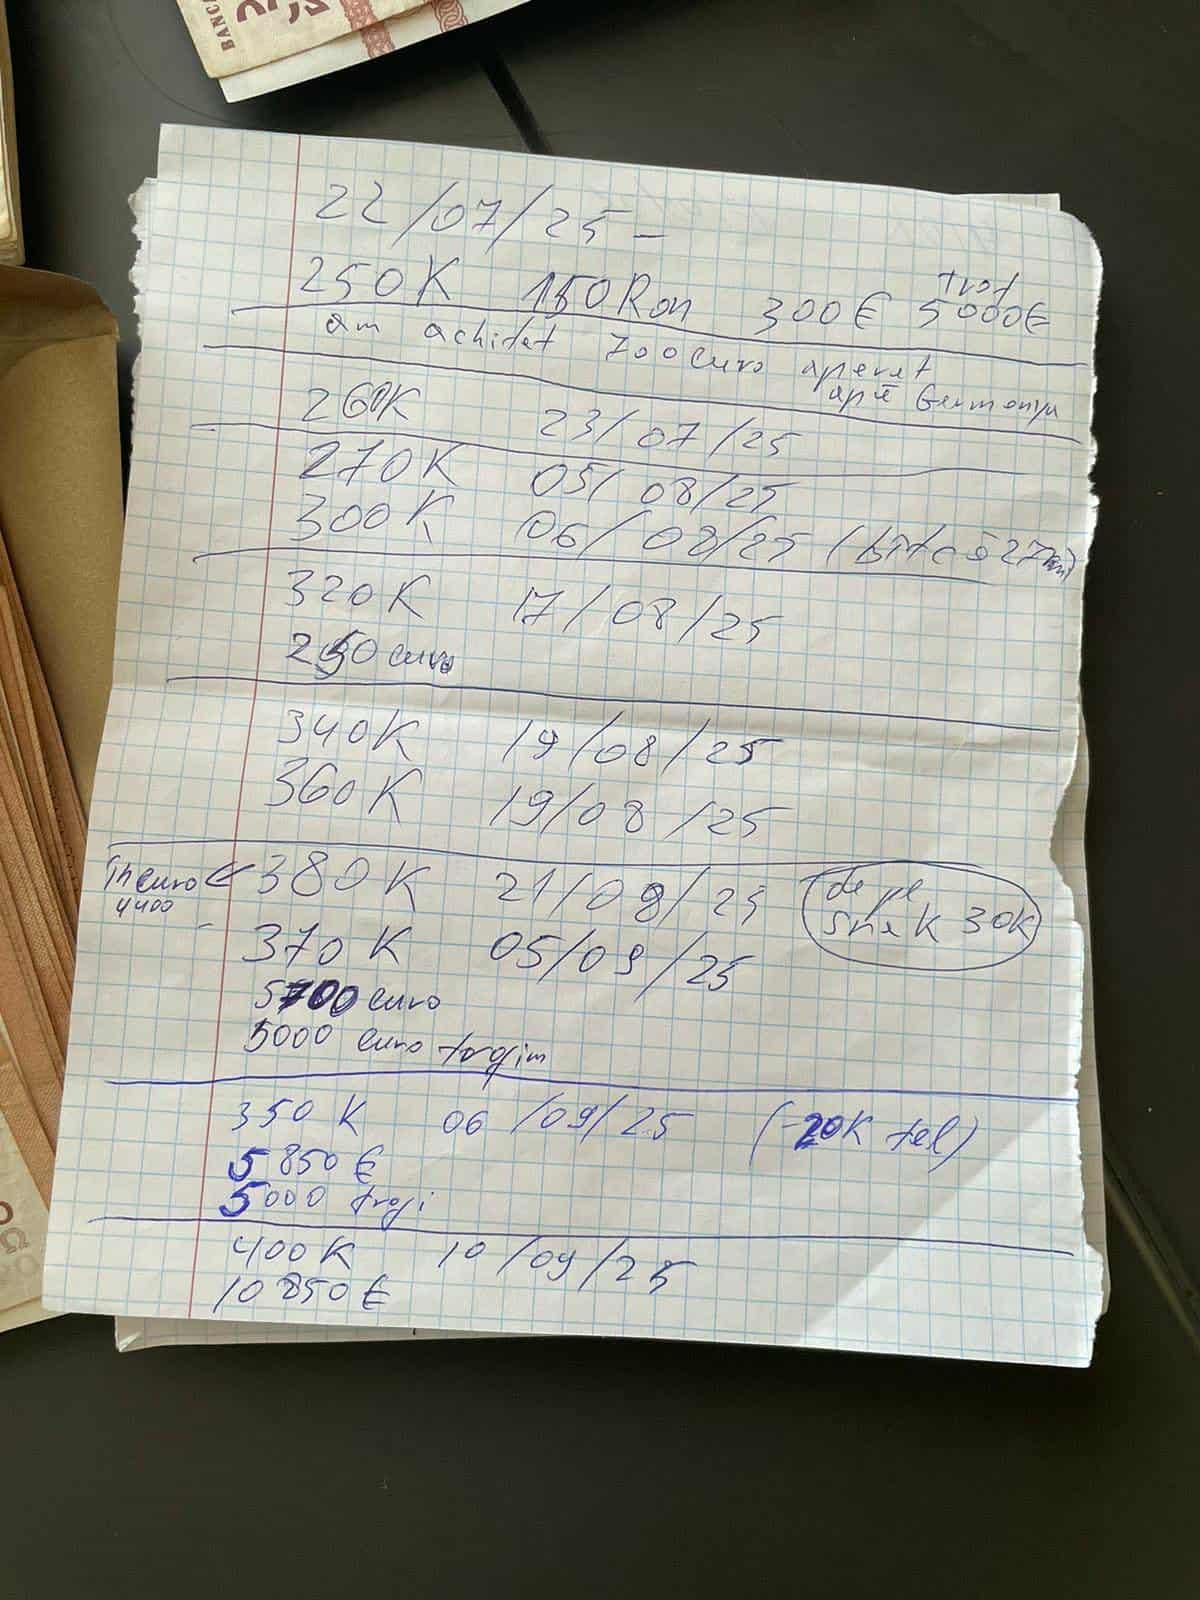 BANCA
22/07/25 -
250K 150Ron 300€ 5000€
am achitat 700 euro aparat
apă Germania
260K 23/07/25
270K 05/08/25
300K 06/08/25
320K 17/08/25
250 euro
340K 19/08/25
360K 19/08/25
In euro 380K 21/08/25 de pe
4400 snek 30K
370K 05/09/25
5700 euro
5000 euro trojim
350K 06/09/25 (-20K tel)
5850€
5000 troji
400K 10/09/25
10850€